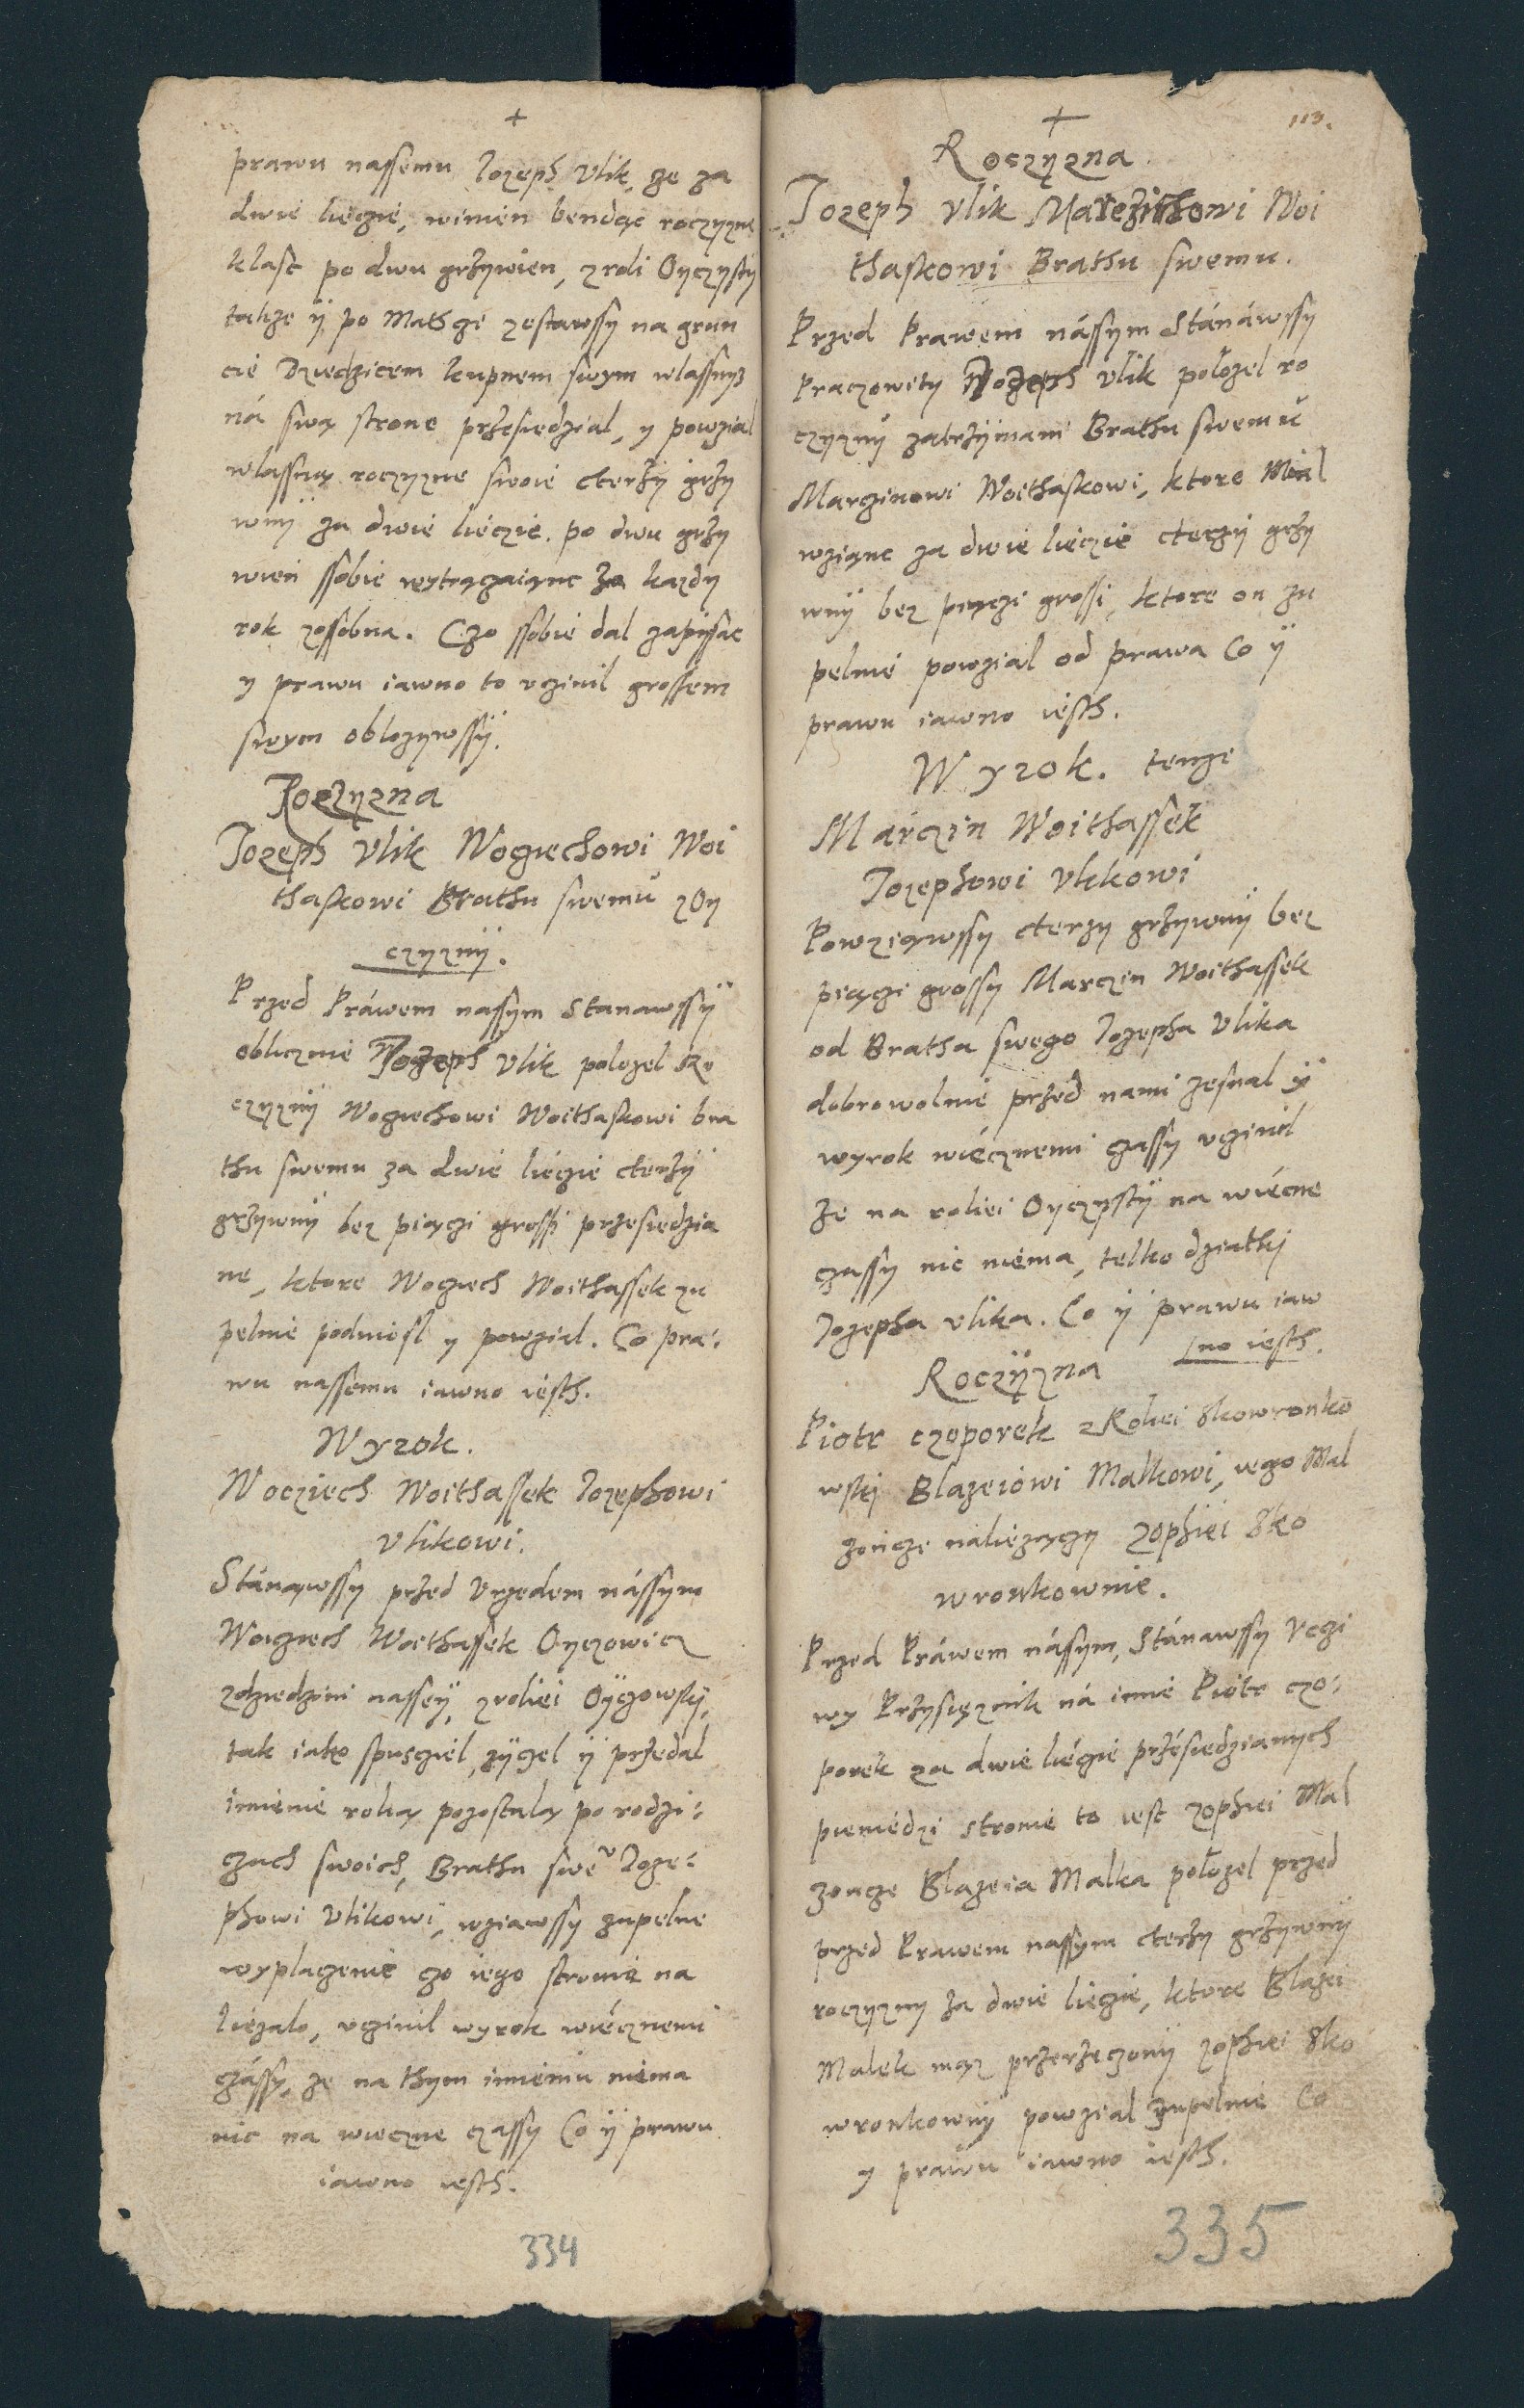 +
prawu nassemu Jozeph Vlik, ze za
dwie lieczie, winien bendąc roczyzne
klasc po dwu grzywien, z roli Oyczysty
takze ÿ po Mathce zestawssy na grun
cie Dziedzicem kupnem swym wlassnÿ
ná swą strone przesiedzial, y powzial
wlassną roczyzne swoie cterzÿ grzy
wnÿ za dwie liecie. po dwu grzy
wien ssobie wytrącaiąnc za kazdy
rok zossobna. Czo ssobie dal zapissac
y prawu iawno to vczinil grossem
swym oblozywssÿ.
Roczÿzna
Jozeph Vlik Wogiechowi Woi
thaskowi Brathu swemu z Oy
czyznÿ.
Przed Práwem nassym Stanawssÿ
oblicznie Jozeph Vlik polozel Ro
czyznÿ Wogiechowi Woithaskowi bra
thu swemu za dwie liecie cterzÿ
grzywnÿ bez piączi grossi przesiedzia
ne, ktore Wogiech Woithassek zu
pelnie podniosl y powzial. Co pra:
wu nassemu iawno iesth.
Wyrok.
Wocziech Woithassek Jozephowi
Vlikowi.
Stánąwssy przed Vrzedem nássym
Woiciech Woithassek Oyczowicz
z dziedzini nassey, z roliei Oÿczowskÿ,
tak iako spusciel, zÿczel ÿ przedal
imienie rolią pozostalą po rodzi:
czuch swoich, Brathu swē Joze:
phowi Vlikowi, wziawssy zupelne
wyplacenie czo iego stronie na
liezalo, vcinil wyrok wiécznemi
czássy, ze na thym imieniu niema
nic na wieczne czassy Co ÿ prawu
iawno iesth.
334
+
113.
Roczÿzna
Jozeph Vlik Marczinowi Woi
thaskowi Brathu swemu.
Przed Prawem nássym Stánáwssy
Praczowity Jozeph Vlik polozel ro
czyznÿ zatrzÿmani Brathu swemu
Marczinowi Woithaskowi, ktore Mial
wziąnc za dwie liecie cterzÿ grzy
wnÿ bez piączi grossi, ktore on zu
pelnie powzial od prawa Co ÿ
prawu iawno iesth.
Wyrok. tenze
Marczin Woithassek
Jozephowi Vlikowi
Powziąwssy cterzy grzywnÿ bez
piączi grossy Marczin Woithassek
od Bratha swego Jozepha Vlika
dobrowolnie przed nami zesnal ÿ
wyrok wiécznemi czassy vczinil
ze na roliei Oyczystÿ na wiécne
czassy nic niema, telko dziathkj
Jozepha Vlika. Co ÿ prawu iaw
no iesth.
Roczÿzna
Piotr czoporek z Roliei Skowronko
wskj Blazeiowi Malkowi, iego Mal
zoncze naliezączy Zophiei Sko
wronkownie.
Przed Práwem nássym, Stánawssy Vczi
wy Przysięznik ná imie Piotr czo:
porek za dwie liecie przesiedzianych
pieniedzi stronie to iest Zophiei Mal
zoncze Blazeia Malka polozel przed
przed Prawem nassym cterzy grzywnÿ
roczyzny za dwie liecie, ktore Blazei
Malek mąz przerzeczonÿ Zophiei Sko
wronkownÿ powzial zupelnie Co
y prawu iawno iesth.
335